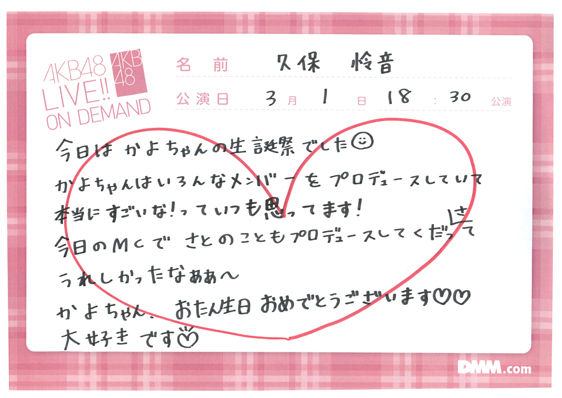 AKB48
LIVE!!
ON DEMAND
AKB
48
名前 久保 怜音
公演日 3月1日 18:30 公演
今日は かよちゃんの生誕祭でした
かよちゃんはいろんなメンバーをプロデュースしていて
本当にすごいな!っていつも思ってます!
今日のMCで さとのこともプロデュースしてくださって
うれしかったなぁぁ〜
かよちゃん、おたん生日 おめでとうございます♡♡
大好きです♡
DMM.com